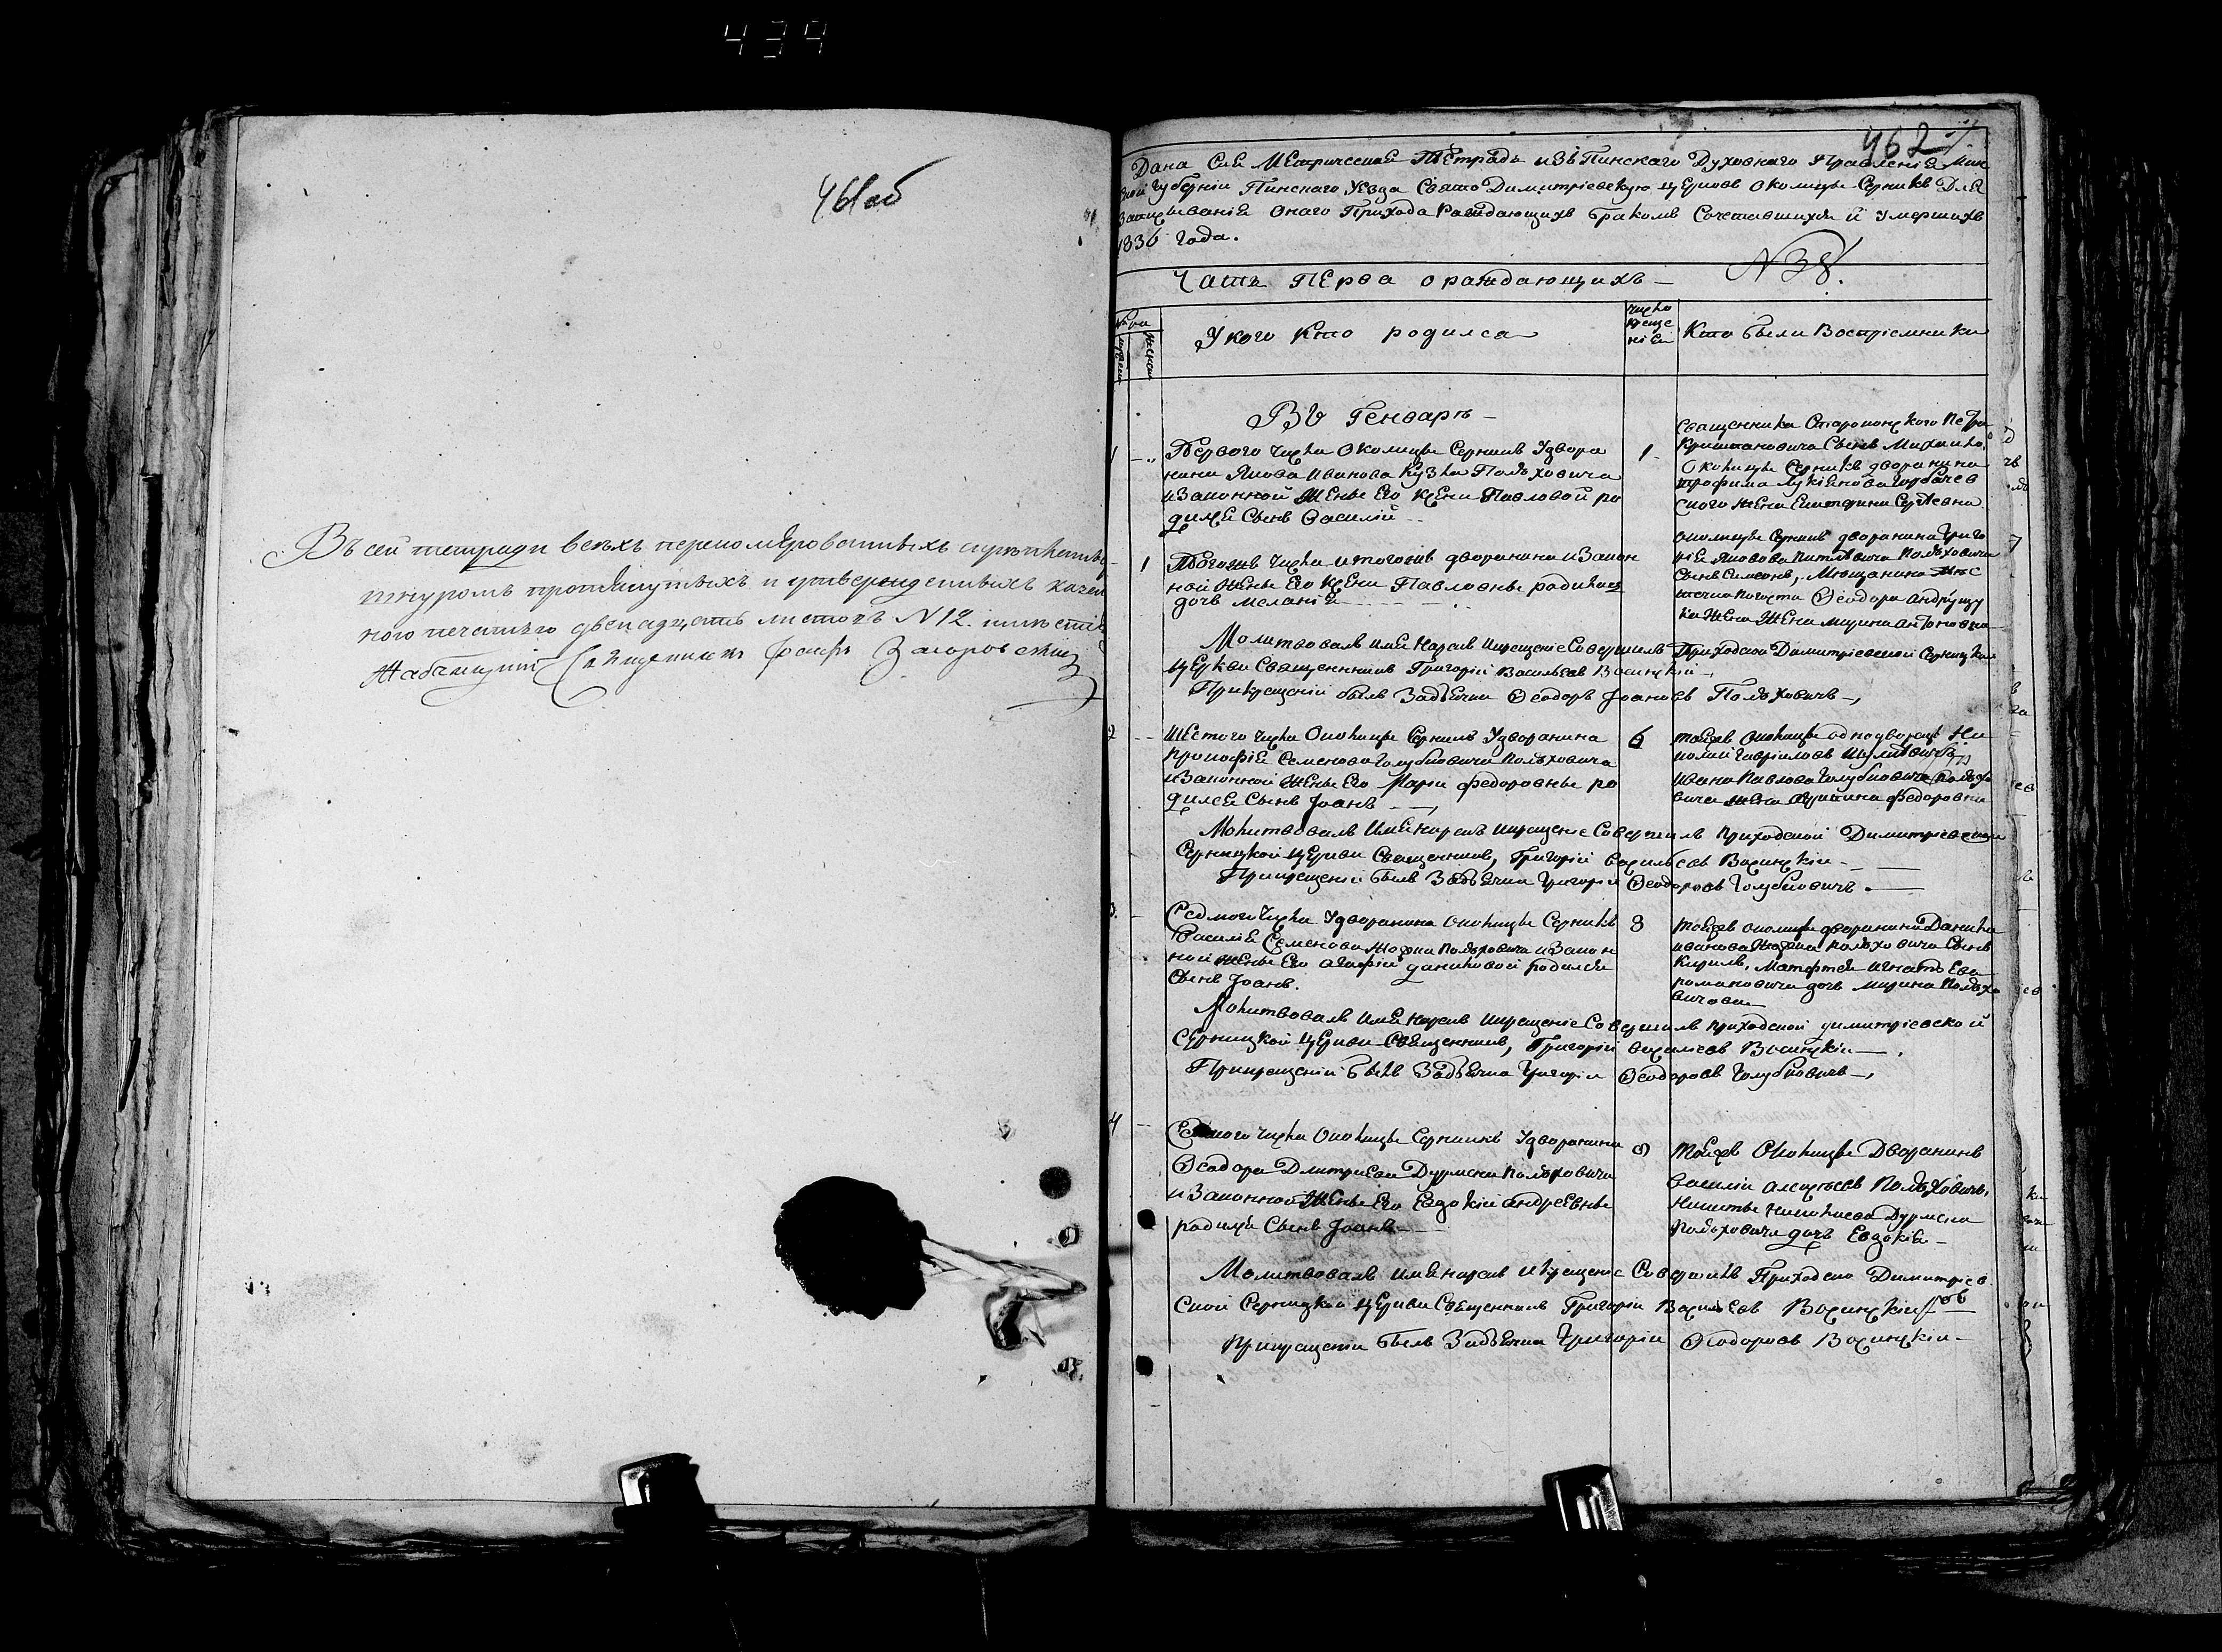 439
461 об
Въ сей тетради всехъ перенолѣрованныхъ
шнуромъ протянутыхъ и утвержденныхъ казен
ного печатью двенадцать листовъ N 12.
Священникъ Іосифъ Загоровскій
462
Дана Сія Метрическая Тетрадь изъ Пинскаго Духовнаго Правленія Мин
ской Губерніи Пинскаго уезда Свято Димитріевскую церковь околицы Серникъ Для
Записыванія онаго Прихода Раждающихъ бракомъ Сочетавшихся и Умершихъ
1836 Года.
Часть Перва о раждающихъ
N 38.
У кого Кто родился
число креще нія
Кто были Воспріемники
Въ Генварѣ
1
Первого числа Околицы Серникъ у двора
нина Якова Иванова Кузла Полховича
и Законной Жены Его Ксени Павловой ро
дился Сынъ Василій
1
Священника Старо Петра
Сынъ Михаилъ
Околицы Серникъ дворанина
Трофима Лукіянова Горбачев
ского жена Екатерина Сергіевна
1
Того жъ числа и того жъ дворанина и Закон
ной Жены Его Ксени Павловны родилась
дочь Меланія
околицы Серникъ дворанина Григо
рія Полховича
Сынъ Симеонъ, Мещанина
Ѳеодора Андрущу
Жена Марина Антоновна
Молитвовалъ имя нарекъ и крещеніе Совершилъ Приходской Димитріевской Серницкой
Церкви Священникъ Григорій Васильевъ
При крещеніи былъ За дьячка Ѳеодоръ Іоановъ Полховичъ
2
Шестого числа Околицы Серникъ у дворанина
Прокофія Семенова Голубовича Полховича
и Законной Жены Его Маріи Федоровны ро
дился Сынъ Іоанъ
6
тойжъ Околицы однодворецъ Ни
колай Гавриловъ
Ивана Павлова Голубовича Полхо
вича жена Федоровна
Молитвовалъ Имя нарекъ и крещеніе Совершилъ приходской Димитріевской
Серницкой Церкви Священникъ, Григорій Васильевъ
При крещеніи былъ За дьячка Григорій Ѳеодоровъ Голубовичъ
3
Седмого числа у дворанина околицы Серникъ
Василія Семенова Полховича и Закон
ной жены Его Агафіи Даниловой родился
Сынъ Іоанъ.
8
тойжъ околицы дворанина Данила
Иванова Полховича Сынъ
Кирилъ,
романовича дочь Марина Полхо
вичова
Молитвовалъ Имя нарекъ и крещеніе Совершилъ приходской димитріевской
Серницкой Церкви Священникъ, Григорій Васильевъ
При крещеніи былъ За дьячка Григорій Ѳеодоровъ Голубовичъ
4
числа Околицы Серникъ у дворанина
Ѳеодора Дмитриева Дурмана Полховича
и Законной Жены Его Евдокіи Андреевны
родился Сынъ Іоанъ
8
тойжъ Околицы Дворанинъ
Василій Алексѣевъ Полховичъ,
Никиты Николаева Дурмана
Полховича дочь Евдокія
Молитвовалъ имя нарекъ и крещеніе Совершилъ Приходской Димитріев
ской Серницкой Церкви Священникъ Григорій Васильевъ
При крещеніи былъ За дьячка Григорій Ѳеодоровъ